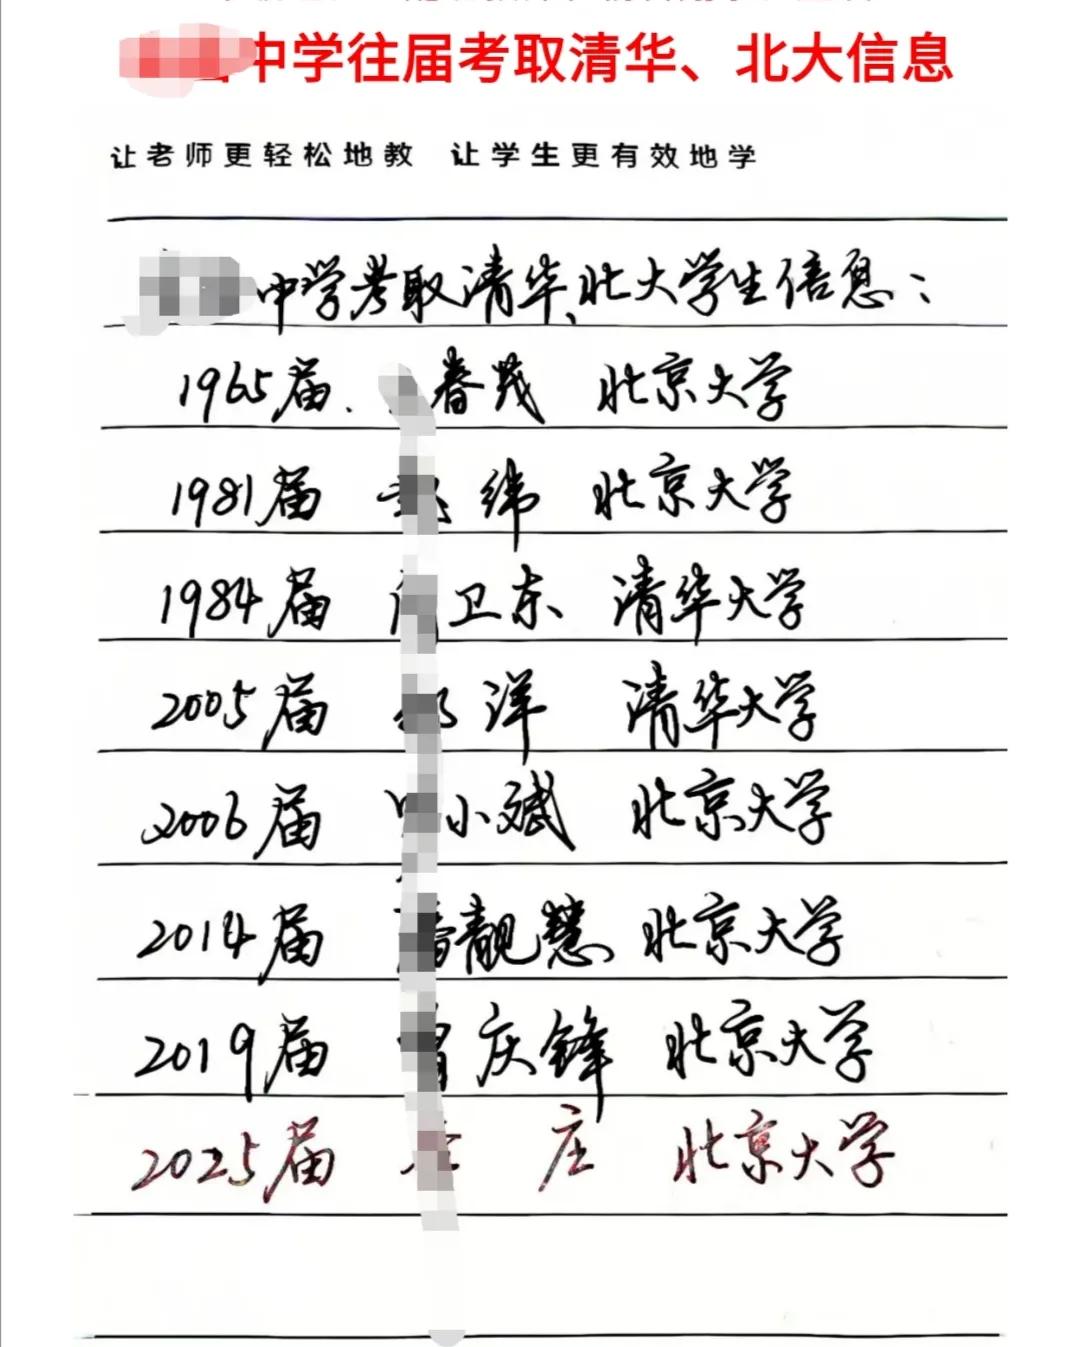 中学往届考取清华、北大信息
让老师更轻松地教 让学生更有效地学
中学考取清华、北大学生信息：
1965届. 春茂 北京大学
1981届 纬 北京大学
1984届 卫东 清华大学
2005届 洋 清华大学
2006届 小斌 北京大学
2014届 靓慧 北京大学
2019届 庆锋 北京大学
2025届 庄 北京大学